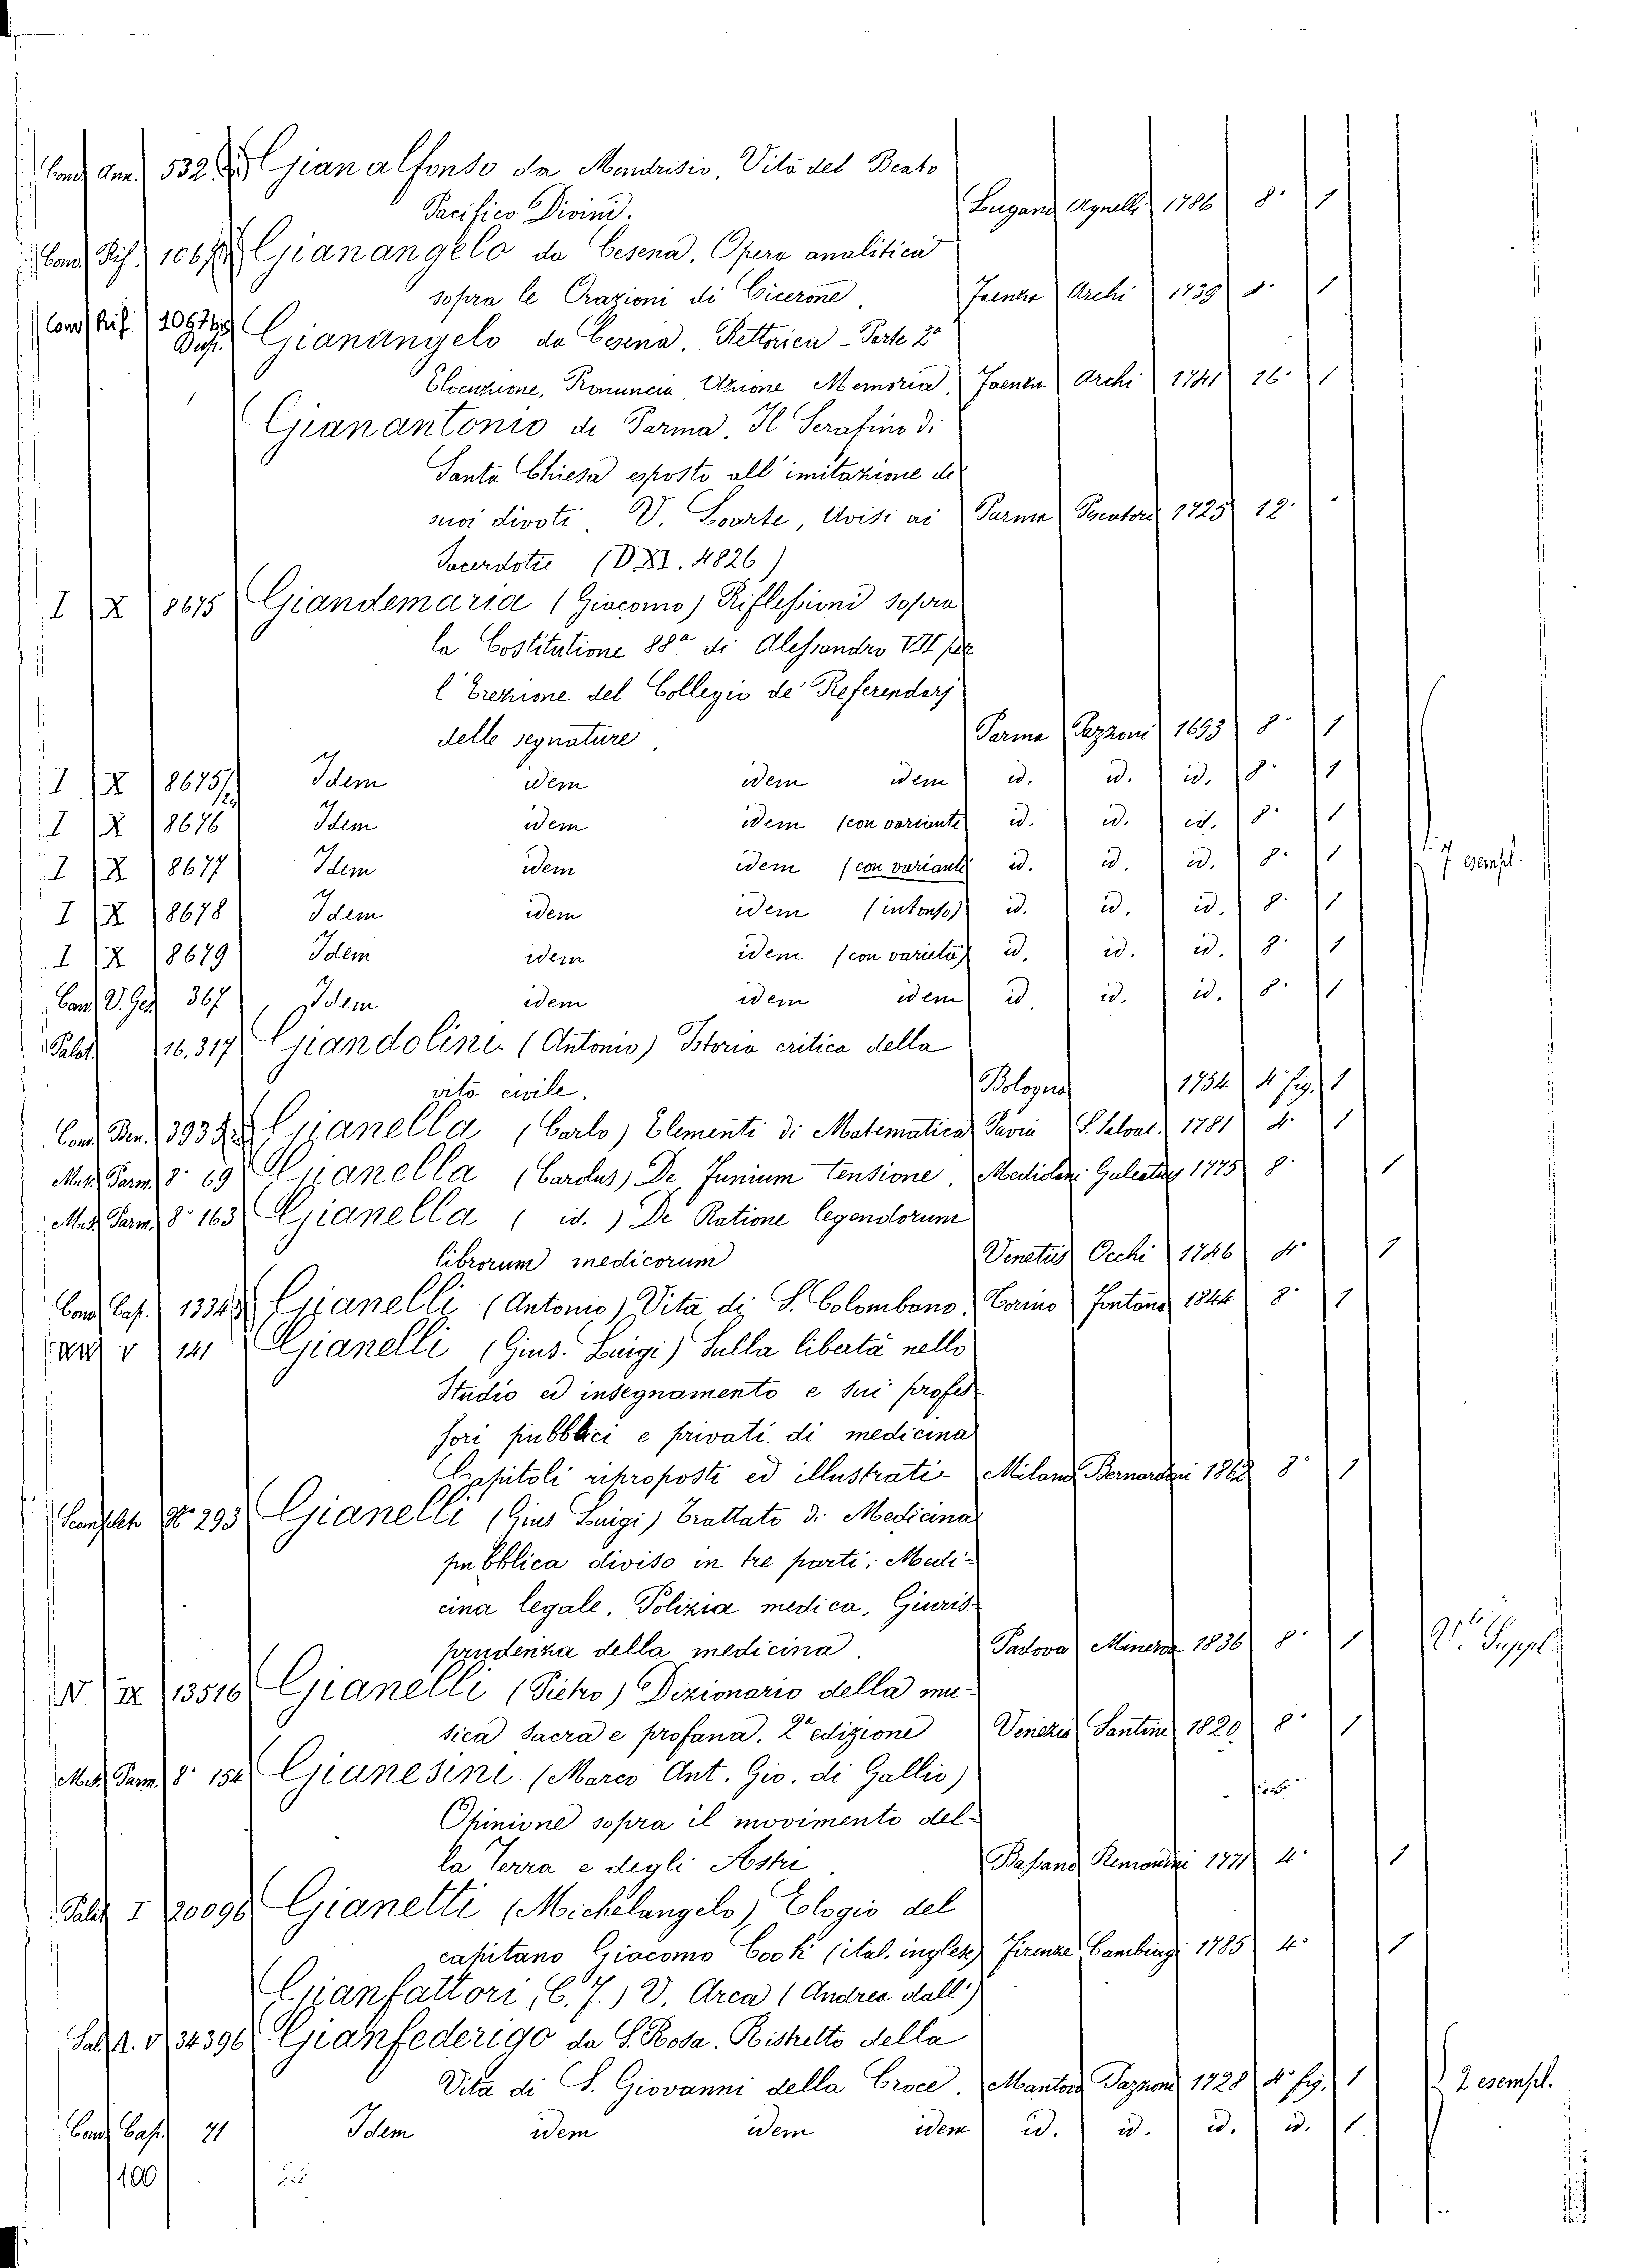 Cons. Ann. 532 Gianalfonso da Mendrisio, Vita del Beato
Pacifico Divini. Lugano Agnelli 1786 8° 1
Cons. Rif. 1067 Gianangelo da Cesena. Opera analitica
sopra le Orazioni di Cicerone Faenza Archi 1739 1
Cons. Rif. 1067 Gianangelo da Cesena. Rettorica - Parte 2a
Elocuzione, Pronuncia, Azione Memoria. Faenza Archi 1741 16° 1
Gianantonio di Parma. Il Serafino di
Santa Chiesa esposto all'imitazione de
suoi divoti. V. Loarte, Avisi ai Parma 1725 12°
Sacerdoti (D XI. 4826)
I X 8675 Giandemaria (Giacomo) Riflessioni sopra
la Costitutione 88a di Alessandro VII per
l'Erezione del Collegio de' Referendarj
delle segnature. Parma Pazzoni 1693 8° 1
I X 8675/2 Idem idem idem idem id. id. id. 8° 1
I X 8676 Idem idem idem (con variante) id. id. id. 8° 1
I X 8677 Idem idem idem (con variante) id. id. id. 8° 1 7 esempl.
I X 8678 Idem idem idem (intonso) id. id. id. 8° 1
I X 8679 Idem idem idem (con varietà) id. id. id. 8° 1
Cons. V. Ges. 367 Idem idem idem idem id. id. id. 8° 1
Palat. 16.317 Giandolini (Antonio) Istoria critica della
vita civile. Bologna 1754 4° fig. 1
Cons. Ben. 393 Gianella (Carlo) Elementi di Matematica Pavia S. Salvat. 1781 1
Met. Parm. 8° 69 Gianella (Carolus) De Funium tensione. Mediolani Galeatus 1775 8° 1
Met. Parm. 8° 163 Gianella (id.) De Ratione legendorum
librorum medicorum Venetiis Occhi 1746 4° 1
Cons. Cap. 1334 Gianelli (Antonio) Vita di S. Colombano. Torino Fontana 1844 8° 1
V 141 Gianelli (Gius. Luigi) Sulla libertà nello
Studio ed insegnamento e sui profes
sori pubblici e privati di medicina
Capitoli riproposti ed illustrati Milano Bernardoni 1862 8° 1
N° 293 Gianelli (Gius Luigi) Trattato di Medicina
pubblica diviso in tre parti: Medi-
cina legale. Polizia medica, Giuris-
prudenza della medicina. Padova Minerva 1836 8° 1 Suppl.
IX 13516 Gianelli (Pietro) Dizionario della mu-
sica sacra e profana. 2a edizione Venezia Santini 1820 8° 1
Met. Parm. 8° 154 Gianesini (Marco Ant. Gio. di Gallio)
Opinione sopra il movimento del-
la Terra e degli Astri. Bassano Remondini 1771 4° 1
Palat. I 20096 Gianetti (Michelangelo), Elogio del
capitano Giacomo Cook (ital. inglese) Firenze Cambiagi 1785 4° 1
Gianfattori, (C. J.) V. Arca (Andrea dall')
Sal. V 34396 Gianfederigo da S. Rosa. Ristretto della
Vita di S. Giovanni della Croce. Mantova Pazzoni 1728 4° fig. 1 2 esempl.
Cons. Cap. 71 Idem idem idem idem id. id. id. id. 1
100